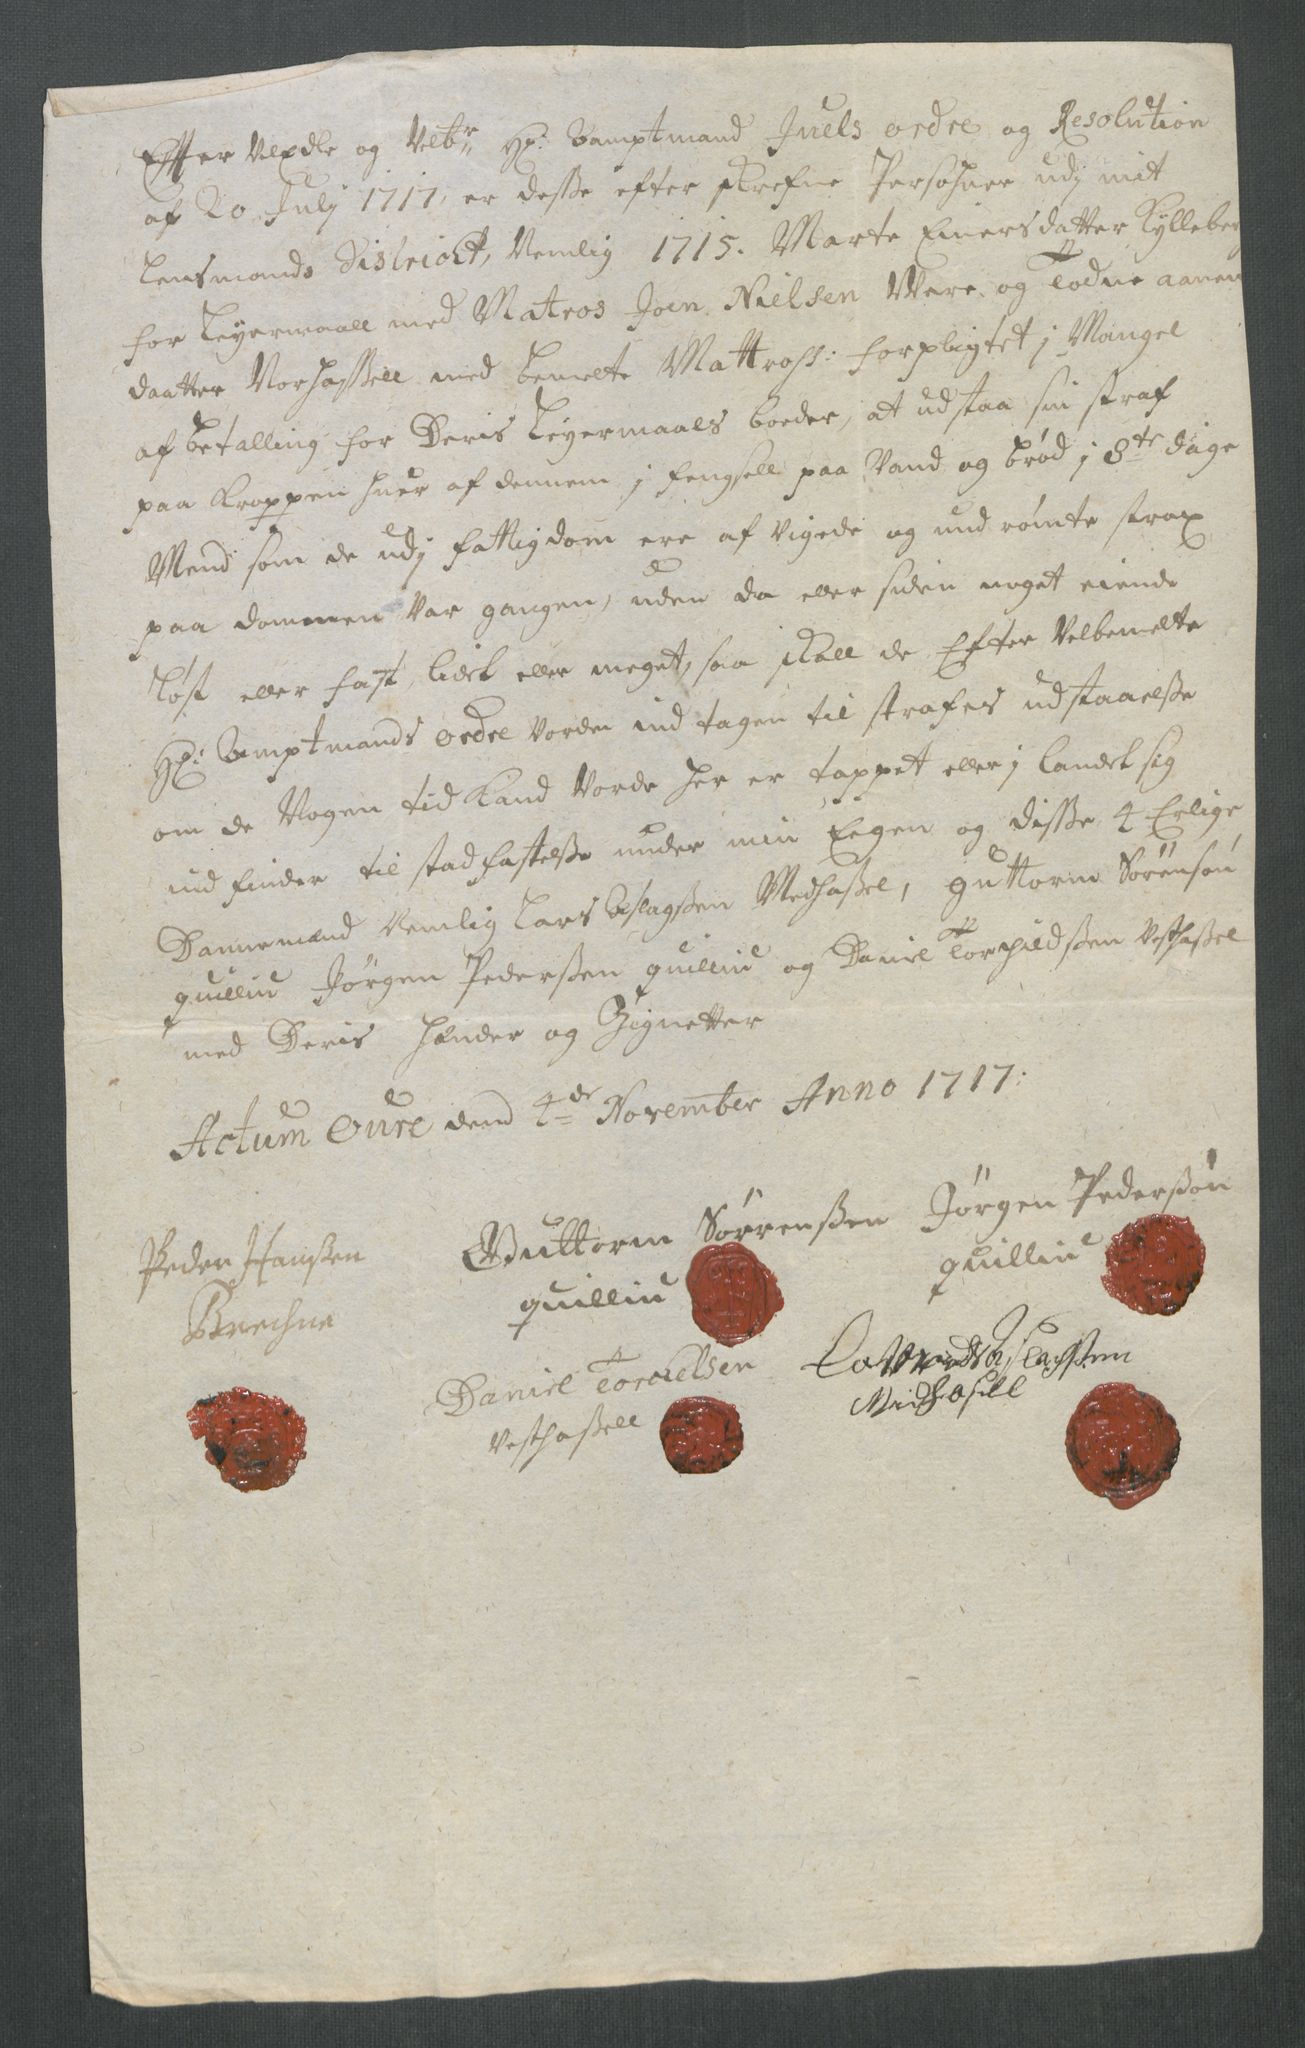 Effter Velædle og Velbr: Hr: Ambtmand Juels ordre og Resolution
af 20 Julÿ 1717, er desse efter skrefne Persohner udj mit
Lensmands District, Nemlig 1715. Marte Einersdatter Kÿlleberg
for Leyermaall med Matros Joen Nielsen Were, og Todne aanen
daatter Norhassell med bemelte Mattross: forpligtet j Mangel
af betalling for Deris Leyermaals bøeder, at udstaa sin straf
paa Kroppen huer af dennem j fengsell paa Vand og brød j 8te dage
Mend som de udj fattigdom ere af vigede og und rømte strax
paa dommen Var gangen, uden da eller siden noget eiende
Løst eller fast, lidet eller meget, saa skall de Efter Velbemelte
Hr: Ambtmands ordre Vorde ind tagen til strafens udstaaelsse
om de Nogen tid Kand Vorde her er tappet eller j landet sig
ind finder til stadfæstelsse under min Eegen og disse 4 Erlige
Dannemænd Nemlig Lars Aslagssen Medhassel, guttorm Sørensøn
quilliu Jørgen Pederssen quilliu og Daniel Torkildssen Vesthassel
med Deris Hænder og Zignetter
Actum Oure dend 4de November Anno 1717:
Peder Hanssen
Brechne
Guttorm Sørrenssen
quilliu
Jørgen Pederssøn
quilliu
Daniel Torkielsen
Vesthassell
Aslachssen
Midhasell